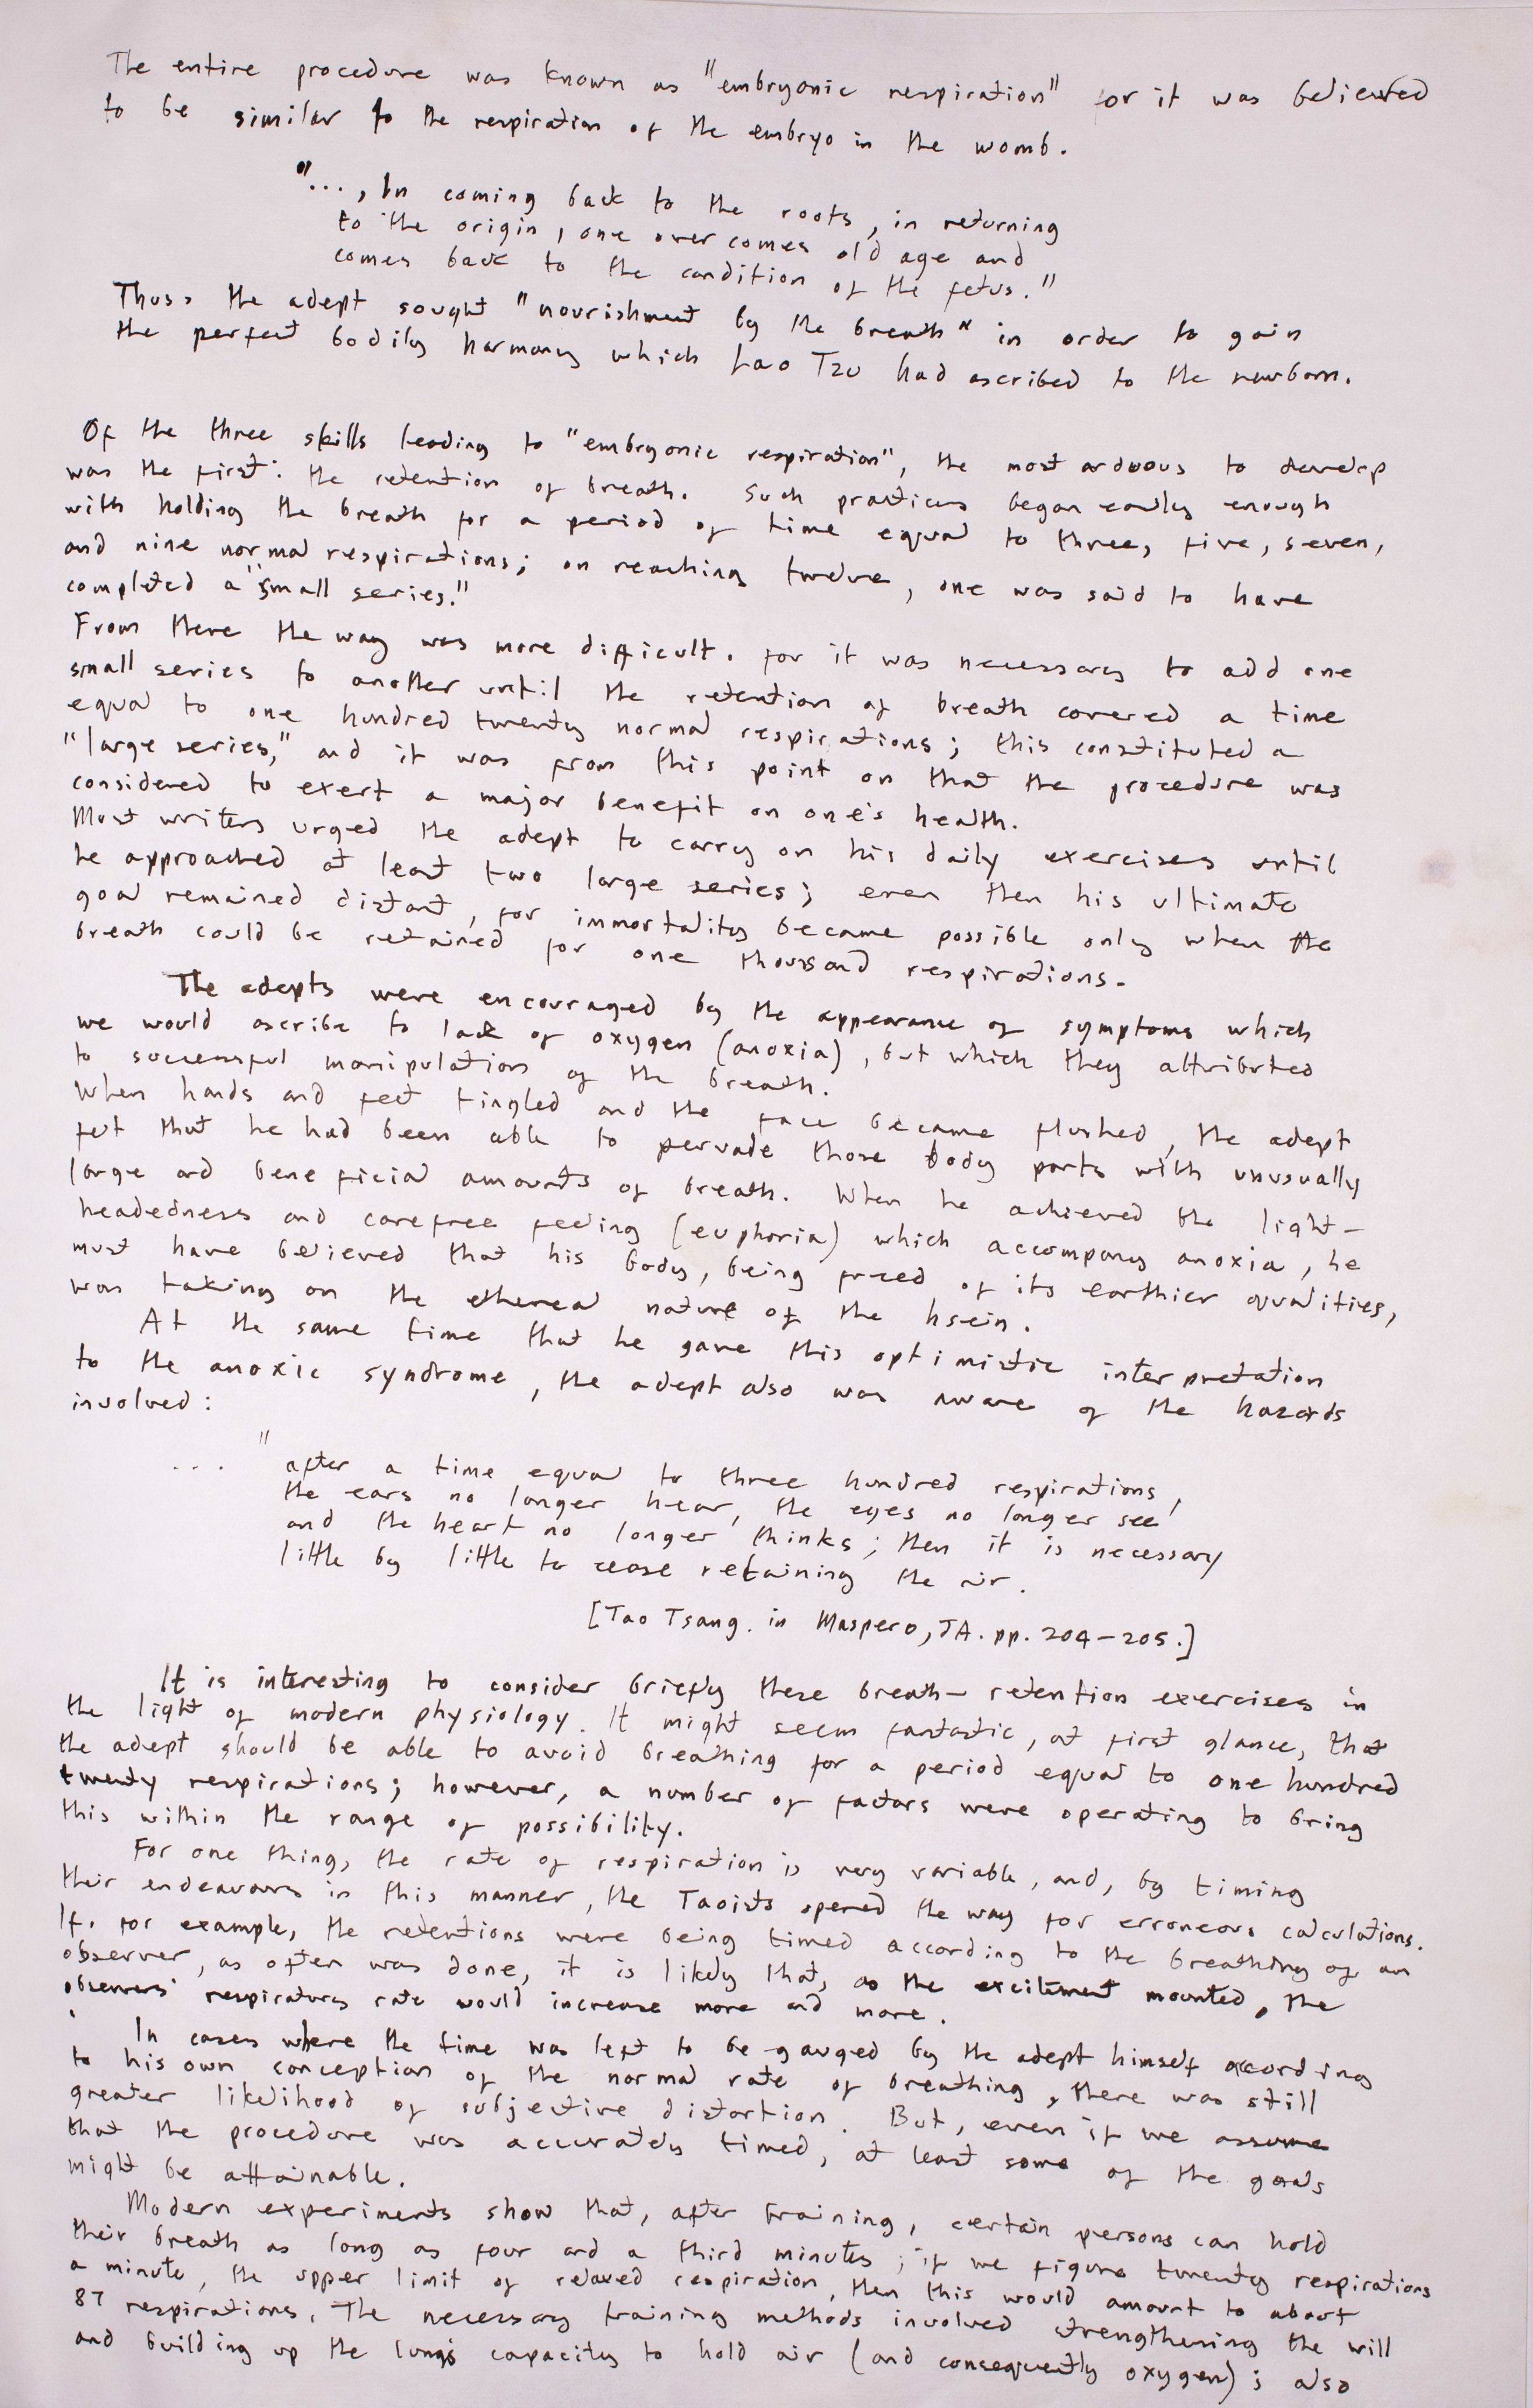 The entire procedure was known as "embryonic respiration" for it was believed
to be similar to the respiration of the embryo in the womb.
"..., In coming back to the roots, in returning
to the origin, one overcomes old age and
comes back to the condition of the fetus."
Thus, the adept sought "nourishment by the breath" in order to gain
the perfect bodily harmony which Lao Tzu had ascribed to the newborn.
Of the three skills leading to "embryonic respiration", the most arduous to develop
was the first: the retention of breath. Such practices began easily enough
with holding the breath for a period of time equal to three, five, seven,
and nine normal respirations; on reaching twelve, one was said to have
completed a "small series."
From there the way was more difficult. for it was necessary to add one
small series to another until the retention of breath covered a time
equal to one hundred twenty normal respirations; this constituted a
"large series," and it was from this point on that the procedure was
considered to exert a major benefit on one's health.
Most writers urged the adept to carry on his daily exercises until
he approached at least two large series; even then his ultimate
goal remained distant, for immortality became possible only when the
breath could be retained for one thousand respirations.
The adepts were encouraged by the appearance of symptoms which
we would ascribe to lack of oxygen (anoxia), but which they attributed
to successful manipulation of the breath.
When hands and feet tingled and the face became flushed, the adept
felt that he had been able to pervade those body parts with unusually
large and beneficial amounts of breath. When he achieved the light-
headedness and carefree feeling (euphoria) which accompany anoxia, he
must have believed that his body, being freed of its earthier qualities,
was taking on the ethereal nature of the hsein.
At the same time that he gave this optimistic interpretation
to the anoxic syndrome, the adept also was aware of the hazards
involved:
... "after a time equal to three hundred respirations,
the ears no longer hear, the eyes no longer see,
and the heart no longer thinks; then it is necessary
little by little to cease retaining the air.
[Tao Tsang. in Maspero, JA. pp. 204-205.]
It is interesting to consider briefly these breath-retention exercises in
the light of modern physiology. It might seem fantastic, at first glance, that
the adept should be able to avoid breathing for a period equal to one hundred
twenty respirations; however, a number of factors were operating to bring
this within the range of possibility.
For one thing, the rate of respiration is very variable, and, by timing
their endeavours in this manner, the Taoists opened the way for erroneous calculations.
If, for example, the retentions were being timed according to the breathing of an
observer, as often was done, it is likely that, as the excitement mounted, the
observers' respiratory rate would increase more and more.
In cases where the time was left to be gauged by the adept himself according
to his own conception of the normal rate of breathing, there was still
greater likelihood of subjective distortion. But, even if we assume
that the procedure was accurately timed, at least some of the goals
might be attainable.
Modern experiments show that, after training, certain persons can hold
their breath as long as four and a third minutes; if we figure twenty respirations
a minute, the upper limit of relaxed respiration, then this would amount to about
87 respirations. The necessary training methods involved strengthening the will
and building up the lungs capacity to hold air (and consequently oxygen); also